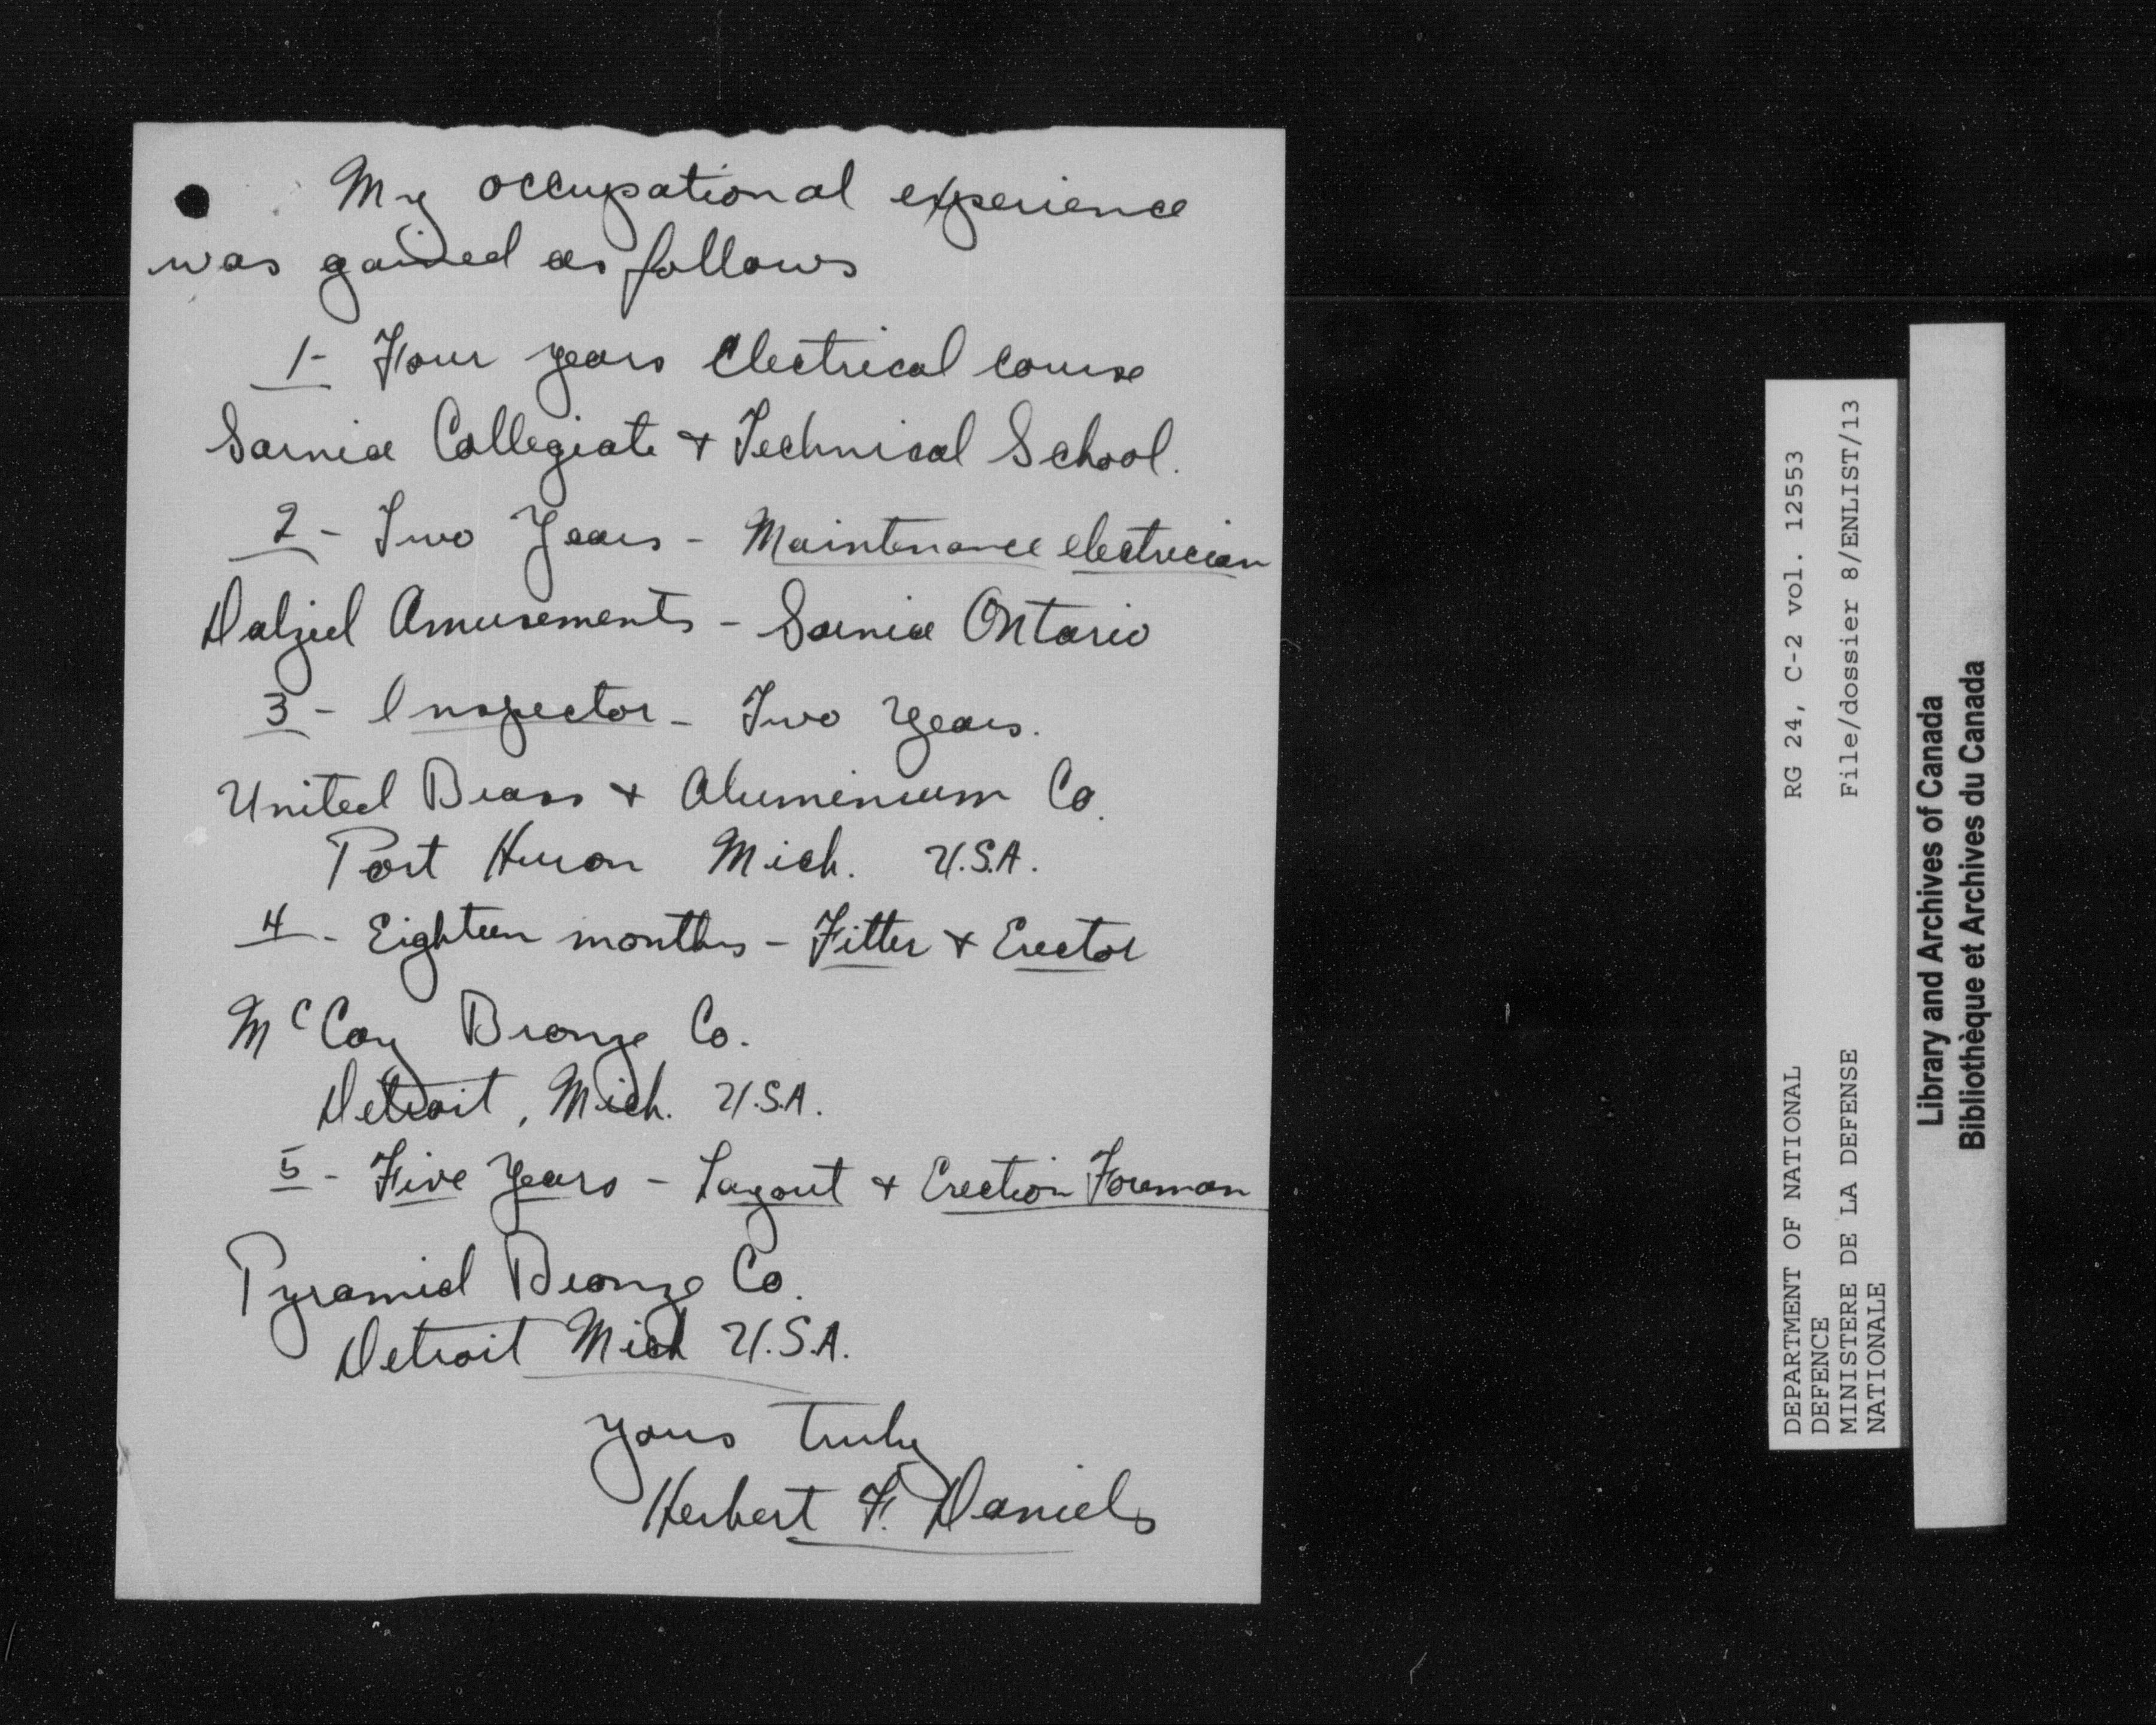 My occupational experience
was gained as follows
1- Four years Electrical course
Sarnia Collegiate + Technical School.
2 - Two Years - Maintenance electrician
Dalziel Amusements - Sarnia Ontario
3 - Inspector - Two Years.
United Brass + Aluminium Co.
Port Huron Mich. U.S.A.
4 - Eighteen months - Fitter + Erector
McCoy Bronze Co.
Detroit, Mich. U.S.A.
5 - Five Years - Layout + Erection Foreman
Pyramid Bronze Co.
Detroit Mich U.S.A.
yours truly
Herbert F. Daniels
DEPARTMENT OF NATIONAL
DEFENCE
MINISTERE DE LA DEFENSE
NATIONALE
RG 24, C-2 vol. 12553
File/dossier 8/ENLIST/13
Library and Archives of Canada
Bibliothèque et Archives du Canada